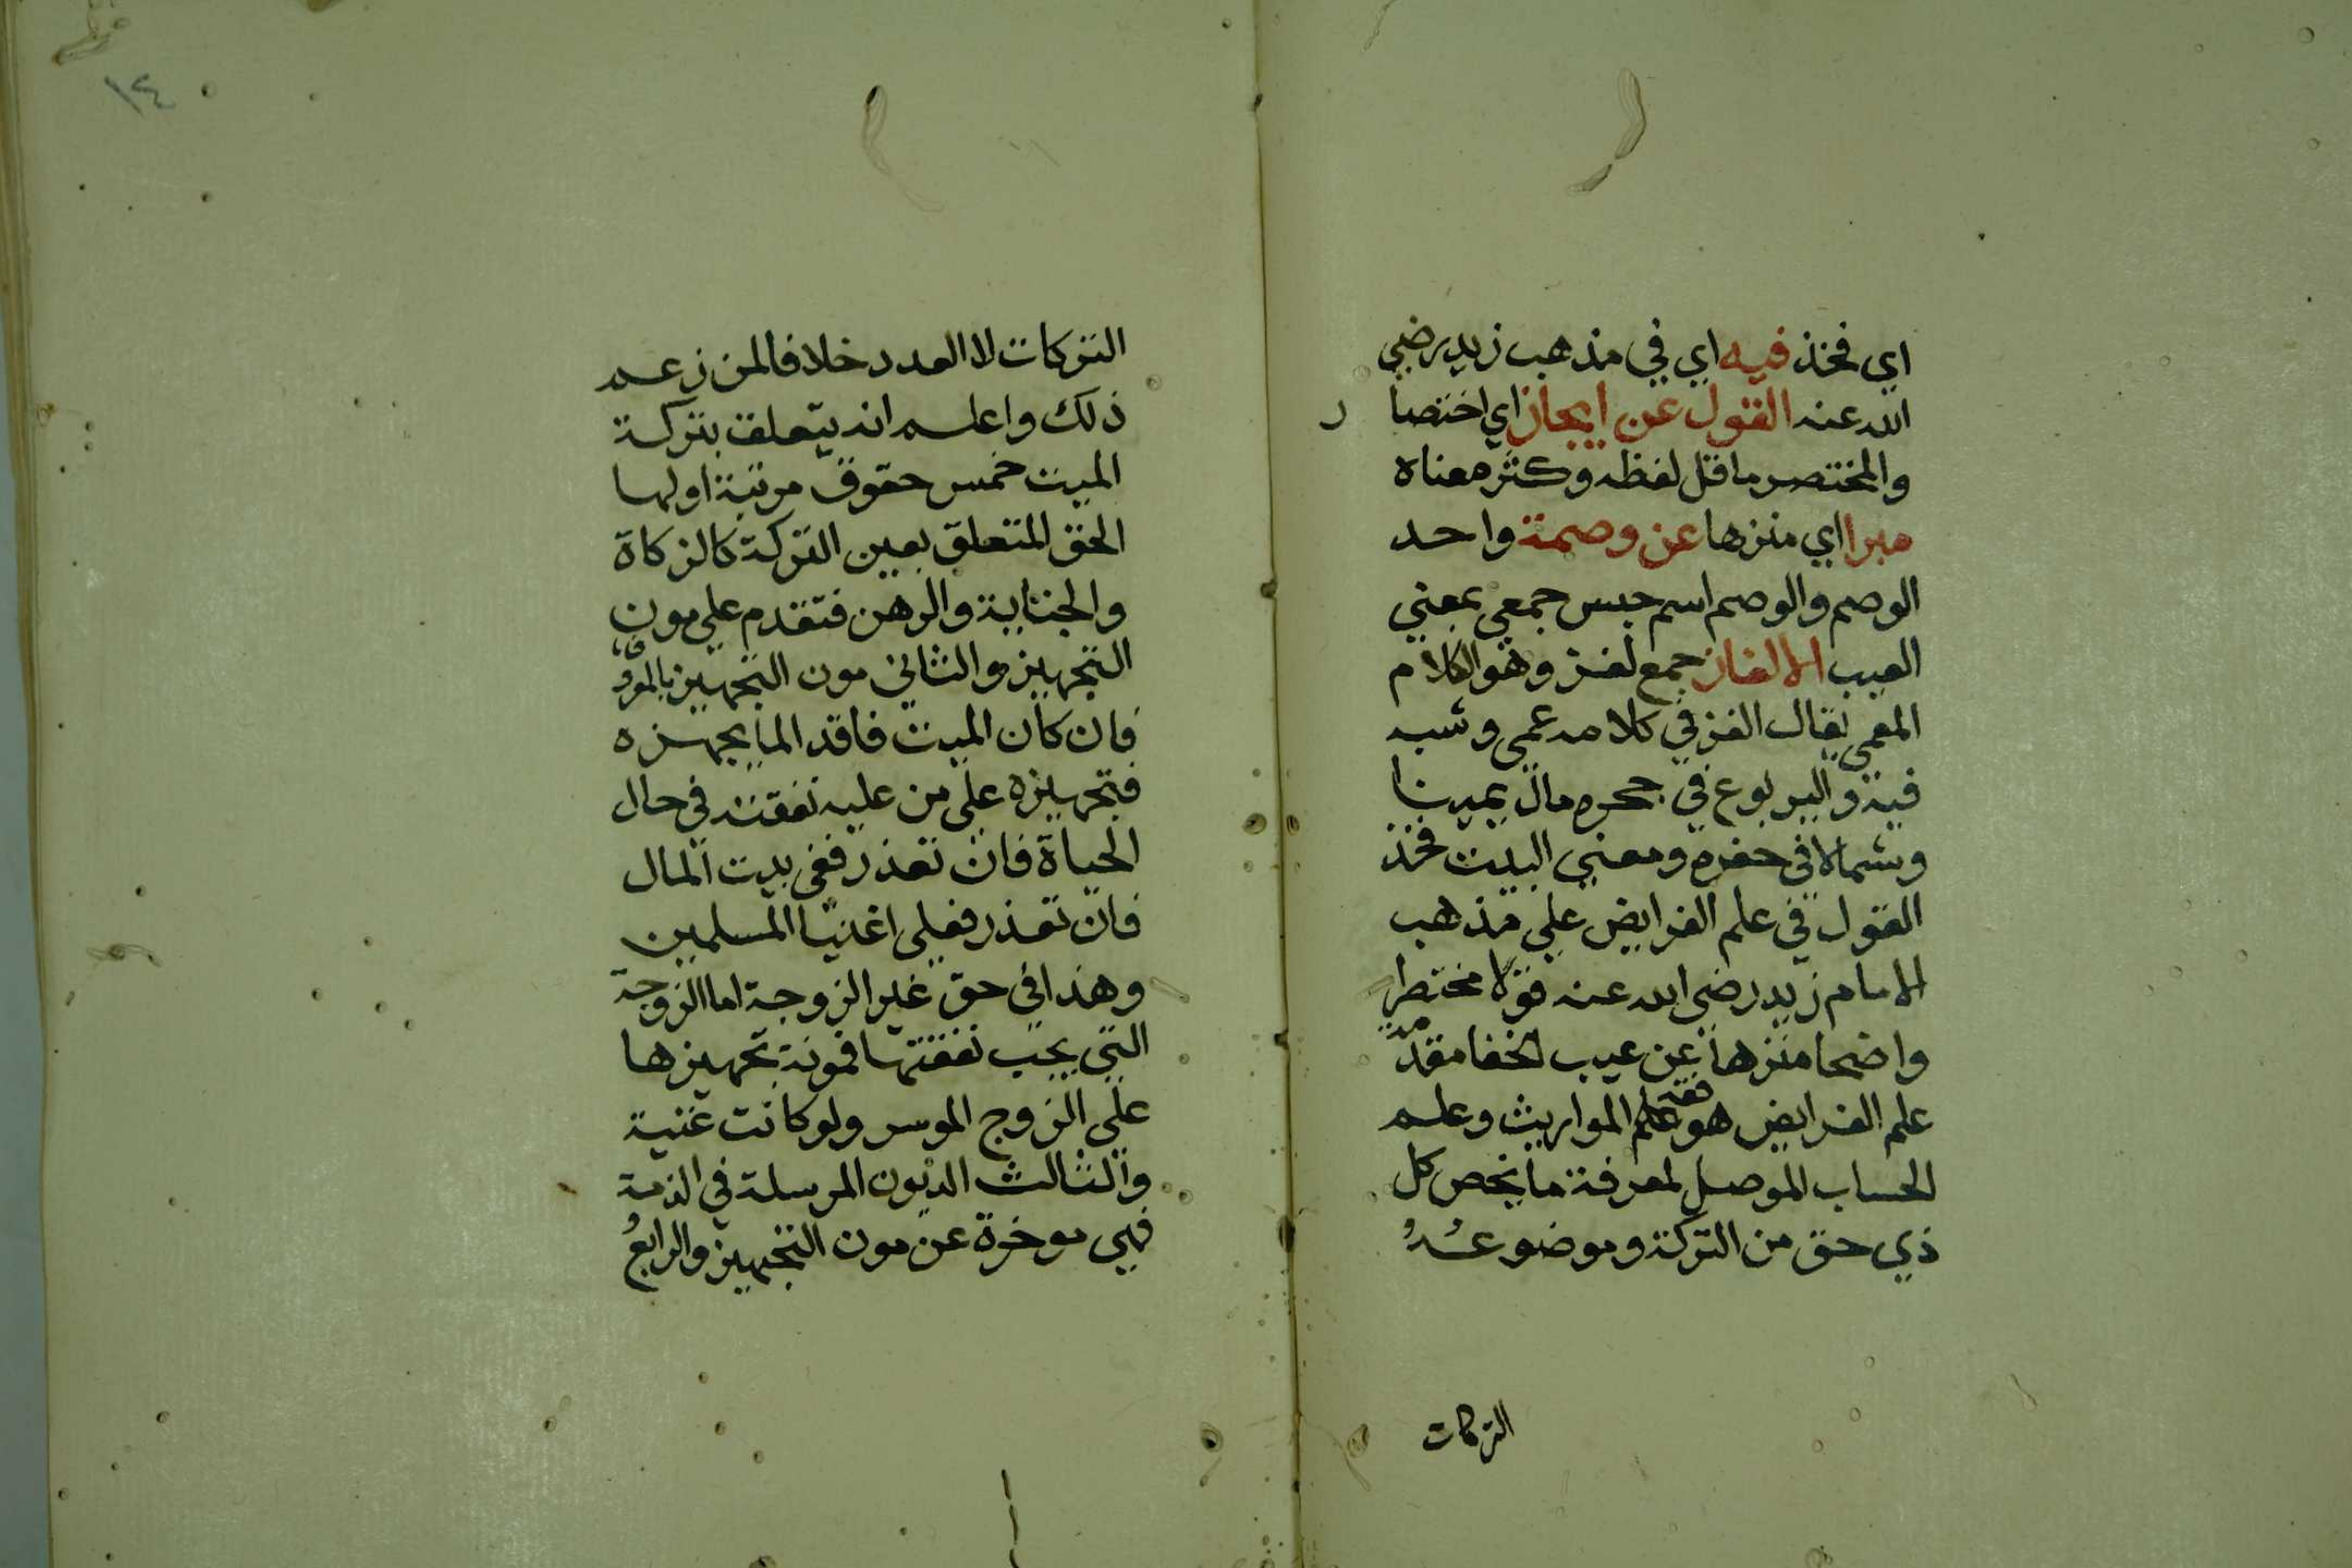 اي فخذ فيه اي في مذهب زيد رضي
الله عنه القول عن ايجاز اي اختصا ر
والمختصر ما قل لفظه وكثر معناه
مبرا اي منزها عن وصمة واحد
الوصم والوصم اسم جنس جمعي بمعني
العيب الالغاز جمع لغز وهو الكلام
المعمي يقال الغز في كلامه عمي وشبه
فيه واليربوع في جحره مال يمينا
وشمالا في حفره ومعني البيت فخذ
القول في علم الفرايض علي مذهب
الامام زيد رضي الله عنه قولا مختصرا
واضحا منزها عن عيب الخفا مقدمة
علم الفرايض هو فقه علم المواريث وعلم
الحساب الموصل لمعرفة ما يخص كل
ذي حق من التركة وموضوعه
التركات
١٤
التركات لا العدد خلافا لمن زعم
ذلك واعلم انه يتعلق بتركة
الميت خمس حقوق مرتبة اولها
الحق المتعلق بعين التركة كالزكاة
والجناية والرهن فتقدم علي مون
التجهيز والثاني مون التجهيز بالمعروف
فان كان الميت فاقد الما يجهزه
فتجهيزه علي من عليه نفقته في حال
الحياة فان تعذر ففي بيت المال
فان تعذر فعلي اغنيا المسلمين
وهذا في حق غير الزوجة اما الزوجة
التي يجب نفقتها فمونة تجهيزها
علي الزوج الموسر ولو كانت غنية
والثالث الديون المرسلة في الذمة
فهي موخرة عن مون التجهيز والرابع